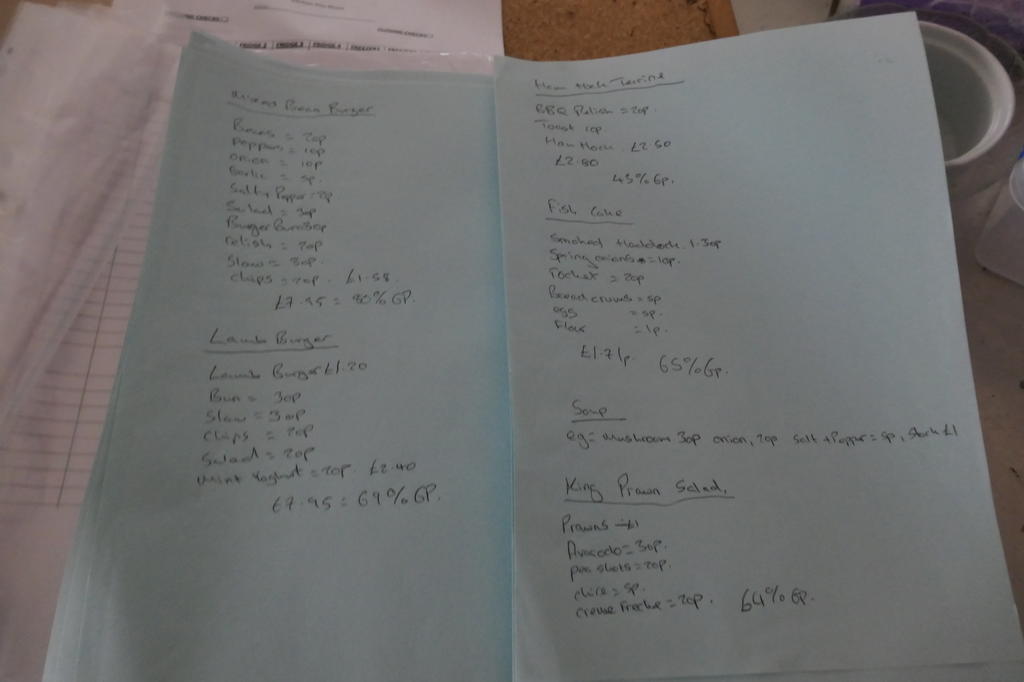 CLOSING CHECKS
FRIDGE 2 FRIDGE 3 FRIDGE 4 FREEZER 1
Mixed Bean Burger
Beans = 20p
Peppers = 10p
onion = 10p
Garlic = 5p.
Salt, Pepper = 2p
Salad = 30p
Burger Bun 30p
relish = 20p
Slaw = 30p.
chips = 20p. £1.58.
£7.95 = 80% GP.
Lamb Burger
Lamb Burger £1.20
Bun = 30p
Slaw = 30p
Chips = 20p
Salad = 20p
Mint Yoghurt = 20p. £2.40
£7.95 = 69% GP.
Ham Hock Terrine
BBQ Relish = 20p.
Toast 10p
Ham Hock. £2.50
£2.80
45% Gp.
Fish Cake
Smoked Haddock. 1.30p
Spring onions = 10p.
rocket = 20p
Bread crumbs = 5p
egg = 5p.
Flour = 1p.
£1.71p. 65% Gp.
Soup
eg = mushroom 30p onion, 20p Salt + Pepper = 5p, Stock £1
King Prawn Salad.
Prawns - £1
Avocado = 30p.
pea shots = 20p.
chive = 5p.
creme Freche = 20p. 64% GP.